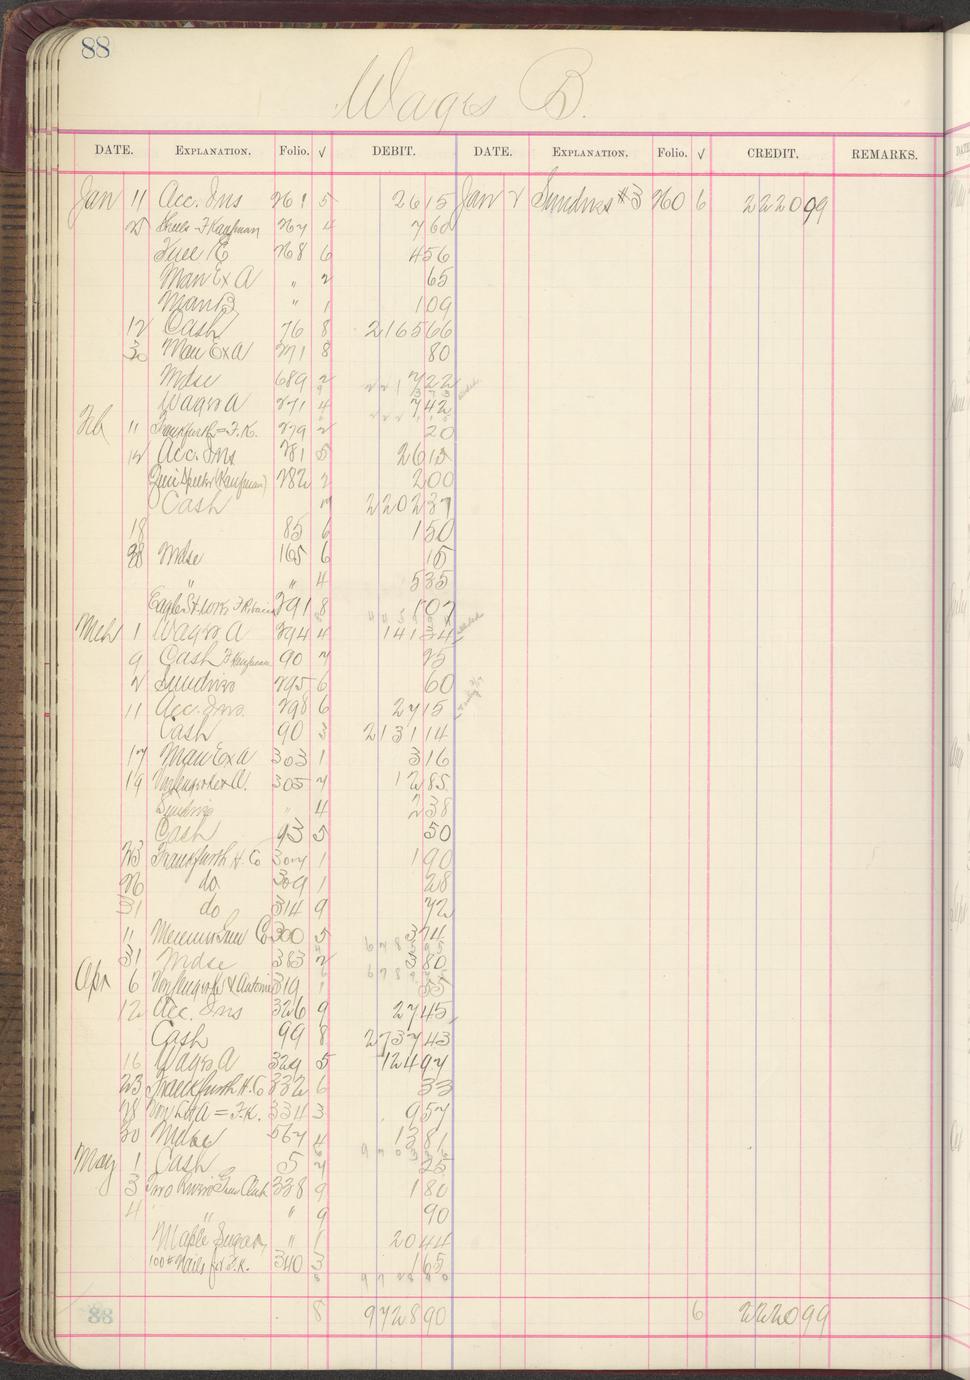 88
Wages B.
DATE. EXPLANATION. Folio. √ DEBIT. DATE. EXPLANATION. Folio. √ CREDIT. REMARKS.
Jan 11 Acc. Ins 261 5 2615 Jan 2 Sundries #3 260 6 222099
25 F Kaufman 267 4 760
Fuel E 268 6 456
Man Ex A " 2 65
Man B " 1 109
12 Cash 76 8 216566
30 Man Ex A 271 8 80
Mdse 689 2 722
Wages A 271 4 742
Feb 11 Frankfurth = F.K. 279 2 20
12 Acc. Ins 281 5 2615
(Kaufman) 282 2 200
Cash 7 220237
18 85 6 150
28 Mdse 165 6 15
" " 4 535
Eagle St. Wks F 291 8 107
Mch 1 Wages A 294 4 14134
9 Cash F Kaufman 90 7 25
2 Sundries 295 6 60
11 Acc. Ins. 298 6 2715
Cash 90 3 213114
17 Man Ex A 303 1 316
19 305 7 1285
Sundries " 4 238
Cash 93 5 50
23 Frankfurth H. Co 307 1 190
26 do 309 1 28
31 do 314 9 72
11 Co 300 5 374
31 Mdse 383 2 380
Apr 6 319 1 55
12 Acc. Ins 326 9 2745
Cash 99 8 273743
16 Wages A 329 5 12497
23 Frankfurth H. Co 332 6 33
28 Ex A = F.K. 334 3 957
30 Mdse 567 4 1381
May 1 Cash 5 7 25
3 Two Rivers 338 9 180
4 " " 9 90
Maple Sugar " 1 2044
100# Nails for F.K. 340 3 165
9 7 2 8 9 0
88 8 972890 6 222099